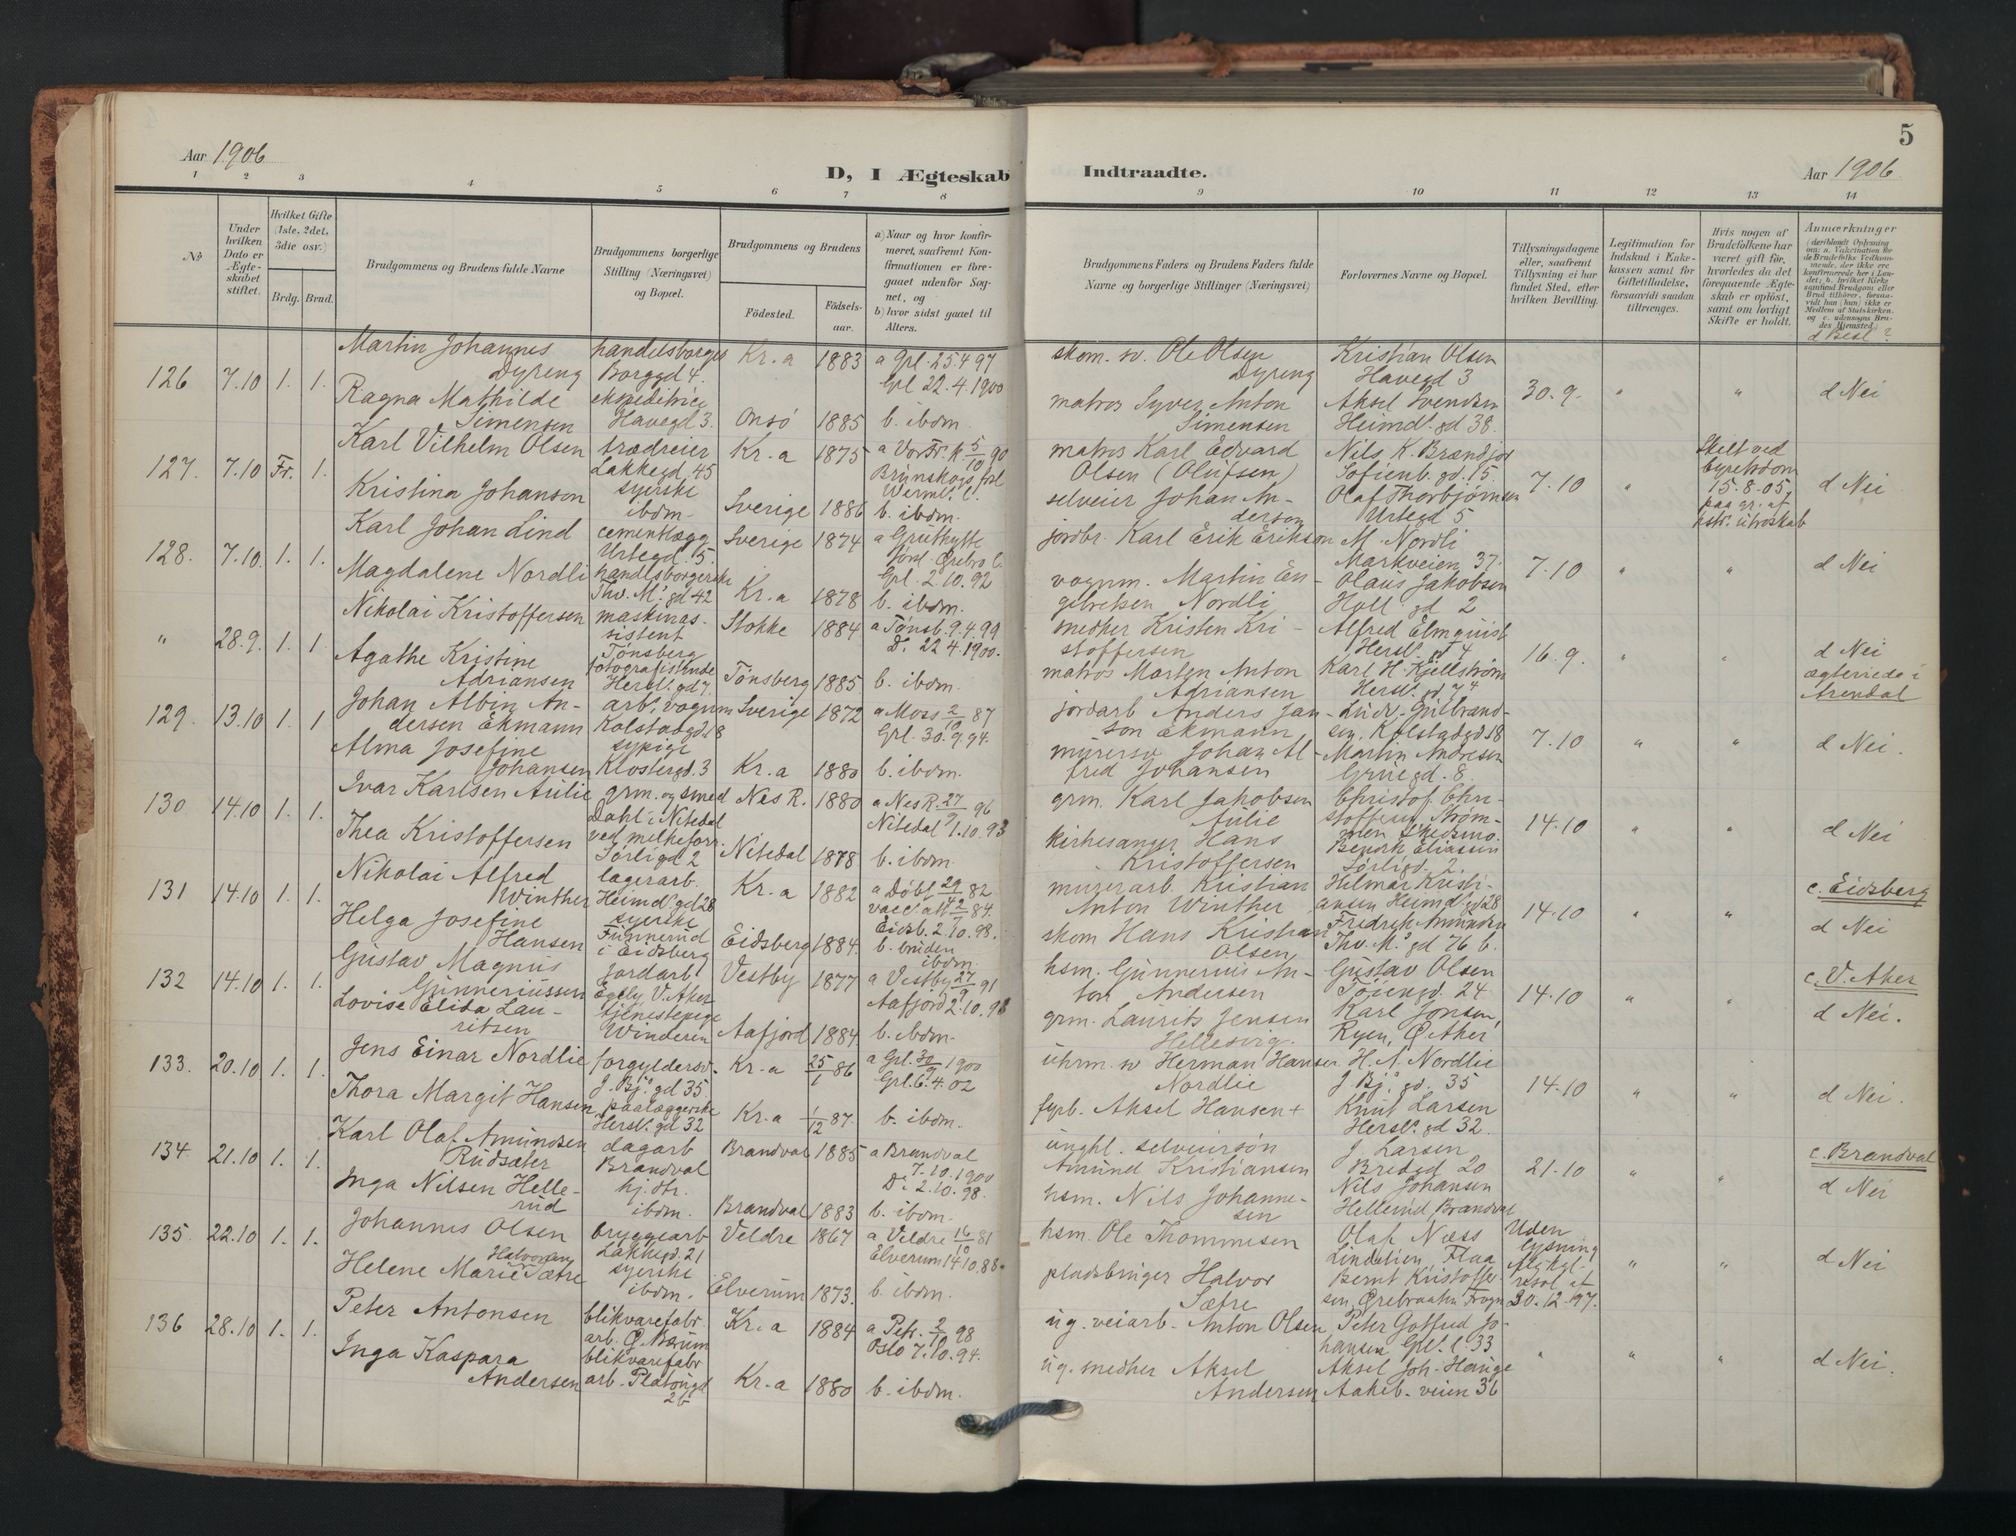 5
Aar 1906
D, I Ægteskab Indtraadte.
Aar 1906
1 2 3 4 5 6 7 8 9 10 11 12 13 14
No
Under hvilken Dato er Ægteskabet stiftet.
Hvilket Gifte (1ste, 2det, 3die osv.)
Brdg. Brud.
Brudgommens og Brudens fulde Navne
Brudgommens borgerlige Stilling (Næringsvei) og Bopæl.
Brudgommens og Brudens
Födested. Födselsaar.
a) Naar og hvor konfirmeret, saafremt Konfirmationen er foregaaet udenfor Sognet, og
b) hvor sidst gaaet til Alters.
Brudgommens Faders og Brudens Faders fulde Navne og borgerlige Stillinger (Næringsvei)
Forlovernes Navne og Bopæl.
Tillysningsdagene eller, saafremt Tillysning ei har fundet Sted, efter hvilken Bevilling.
Legitimation for Indskud i Enkekassen samt for Giftetilladelse, forsaavidt saadan tiltrænges.
Hvis nogen af Brudefolkene har været gift før, hvorledes da det foregaaende Ægteskab er opløst, samt om lovligt Skifte er holdt.
Anmærkninger
d Besl?
126 7.10 1. 1. Martin Johannes Dyreng
handelsborger Borggd 4.
Kr.a 1883 a Grl. 25.4 97
Grl 22.4.1900
Ragna Mathilde Simensen
ekspeditrice Havegd 3.
Onsö 1885 b. ibdm.
skom. sv. Ole Olsen Dyreng
matros Syver Anton Simensen
Kristian Olsen Havegd 3
Aksel Svendsen Heimd. gd 38.
30.9. " " d Nei
127. 7.10 Fr. 1. Karl Vilhelm Olsen
trædreier Lakkegd. 45
Kr.a 1875 a Vor Fr. K. 5/10 90
Kristina Johanson
syerske ibdm.
Sverige 1886 Brunskogs fsl Werml. l. b. ibdm.
matros Karl Edvard Olsen (Olufsen)
selveier Johan Anderson
Nils K. Brændjor Sofienb. gd. 15.
Olaf Thorbjörnsen Urtegd 5
7.10 " Skilt ved byretsdom 15.8.05, paa gr. af hstr. utroskab d Nei
128. 7.10. 1. 1. Karl Johan Lind
cementlægg Urtegd. 5.
Sverige 1874 a Gruthytte förs. Örebro l.
Magdalene Nordli
handlsborgerske Thv. M. gd 42
Kr.a 1878 Grl. 2.10.92 b. ibdm.
jordbr. Karl Erik Erikson
vognm. Martin Engebretsen Nordli
M. Nordli Markveien 37.
Olaus Jakobsen Holl. gd 2
7.10 " " d Nei
" 28.9. 1. 1. Nikolai Kristoffersen
maskinassistent Tönsberg
Stokke 1884 a Tönsb. 9.4.99
D. 22.4.1900.
Agathe Kristine Adriansen
Hersl. gd 7.
Tönsberg 1885 b. ibdm.
snedker Kristen Kristoffersen
matros Morten Anton Adriansen
Alfred Elmquist Hersl. gd 4
Karl H. Kjellström Hersl. gd. 7 4
16.9. " " d Nei
ægteviede i Arendal
129. 13.10 1. 1 Johan Albin Andersen Ekmann
arb. vognm Kolstadgd. 18
Sverige 1872 a Moss 2/10 87
Grl. 30.9.94.
Alma Josefine Johansen
sypige Klostergd. 3
Kr.a 1880 b. ibdm.
jordarb Anders Janson Ekmann
murersv Johan Alfred Johansen
Ludv. Gulbrandsen, Kolstadgd 18
Martin Andresen Grüegd. 8.
7.10 " " d Nei.
130. 14.10 1. 1. Ivar Karlsen Aulie
grm. og smed Dahl i Nitedal
Nes R. 1880 a Nes R. 27/9 96
Nitedal 1.10.93
Thea Kristoffersen
ved melkeforr. Sörligd 2
Nitedal 1878 b. ibdm.
grm. Karl Jakobsen Aulie
kirkesanger Hans Kristoffersen
Christof. Christoffersen, Strömmen, Skedsmo.
Bendik Eliassen Sörligd. 2.
14.10 " " d Nei
131 14.10 1. 1. Nikolai Alfred Winther
lagerarb. Heimd. gd 28
Kr.a 1882 a Döbt 29/4 82
vacc. att 2/7 84.
Helga Josefine Hansen
syerske Funnerud i Eidsberg
Eidsberg 1884. Eidsb. 2.10.98.
b. bruden ibdm.
murerarb. Kristian Anton Winther
skom Hans Kristian Olsen
Hilmar Kristiansen Heimd. gd 28
Fredrik Amundsen Thv. M. gd 76 b.
14.10 " " c. Eidsberg
d Nei
132 14.10 1. 1. Gustav Magnus Gunneriussen
jordarb Egely V. Aker
Vestby 1877 a Vestby 27/9 91
Aafjord 2.10.98
Lovise Elida Lauritsen
tjenestepige Winderen
Aafjord 1884. b. ibdm.
hsm. Gunnerius Anton Andersen
grm. Laurits Jensen Hellesvig.
Gustav Olsen Töiengd. 24
Karl Jonsen, Ryen, Ø. Aker
14.10 " " c. V. Aker
d Nei.
133. 20.10 1. 1. Jens Einar Nordlie
forgyldersv. J. Bj. gd 35
Kr.a 25/1 86 a Grl. 30/9 1900
Grl. 6.4.02
Thora Margit Hansen
paalæggerske Hersl. gd 32
Kr.a 1/12 87. b. ibdm.
uhrm. sv Herman Hansen Nordlie
fyrb. Aksel Hansen +
H. A. Nordlie J Bj. gd. 35
Knut Larsen Hersl. gd 32.
14.10 " " d Nei.
134. 21.10 1. 1. Karl Olaf Amundsen Rudsæter
dagarb Brandval
Brandval 1885 a Brandval 7.10.1900
D. 2.10.98.
Inga Nilsen Hellerud
hj. dtr. ibdm.
Brandval 1883 b. ibdm.
ungkl. selveiersön Amund Kristiansen
hsm. Nils Johannesen
J. Larsen Bredgd 20
Nils Johansen Hellerud, Brandval
21.10 " " c. Brandval
d Nei
135. 22.10 1. 1. Johannes Olsen
bryggearb Lakkegd. 21
Veldre 1867 a Veldre 16/10 81
Elverum 14.10.88.
Helene Marie Halvorsen Sætre
syerske ibdm.
Elverum 1873. b. ibdm.
hsm. Ole Thommesen
pladsbruger Halvor Sætre
Olaf Næss Lindelien, Flaa
Bernt Kristoffersen, Örebraaten Frogn
Uden lysning ifl. kgl. resol. af 30.12.197. " " d Nei
136 28.10 1. 1. Peter Antonsen
blikvarefabr. arb. Ø. Bærum
Kr.a 1884 a Petr. 2/10 98
Oslo 7.10.94.
Inga Kaspara Andersen
blikvarefabr arb. Platougd 2b
Kr.a 1880 b. ibdm.
ug. veiarb. Anton Olsen
ug. snedker Aksel Andersen
Peter Gotfred Johansen Grl. l. 33
Aksel Joh. Hauge Aakeb. veien 36
" " " d Nei.